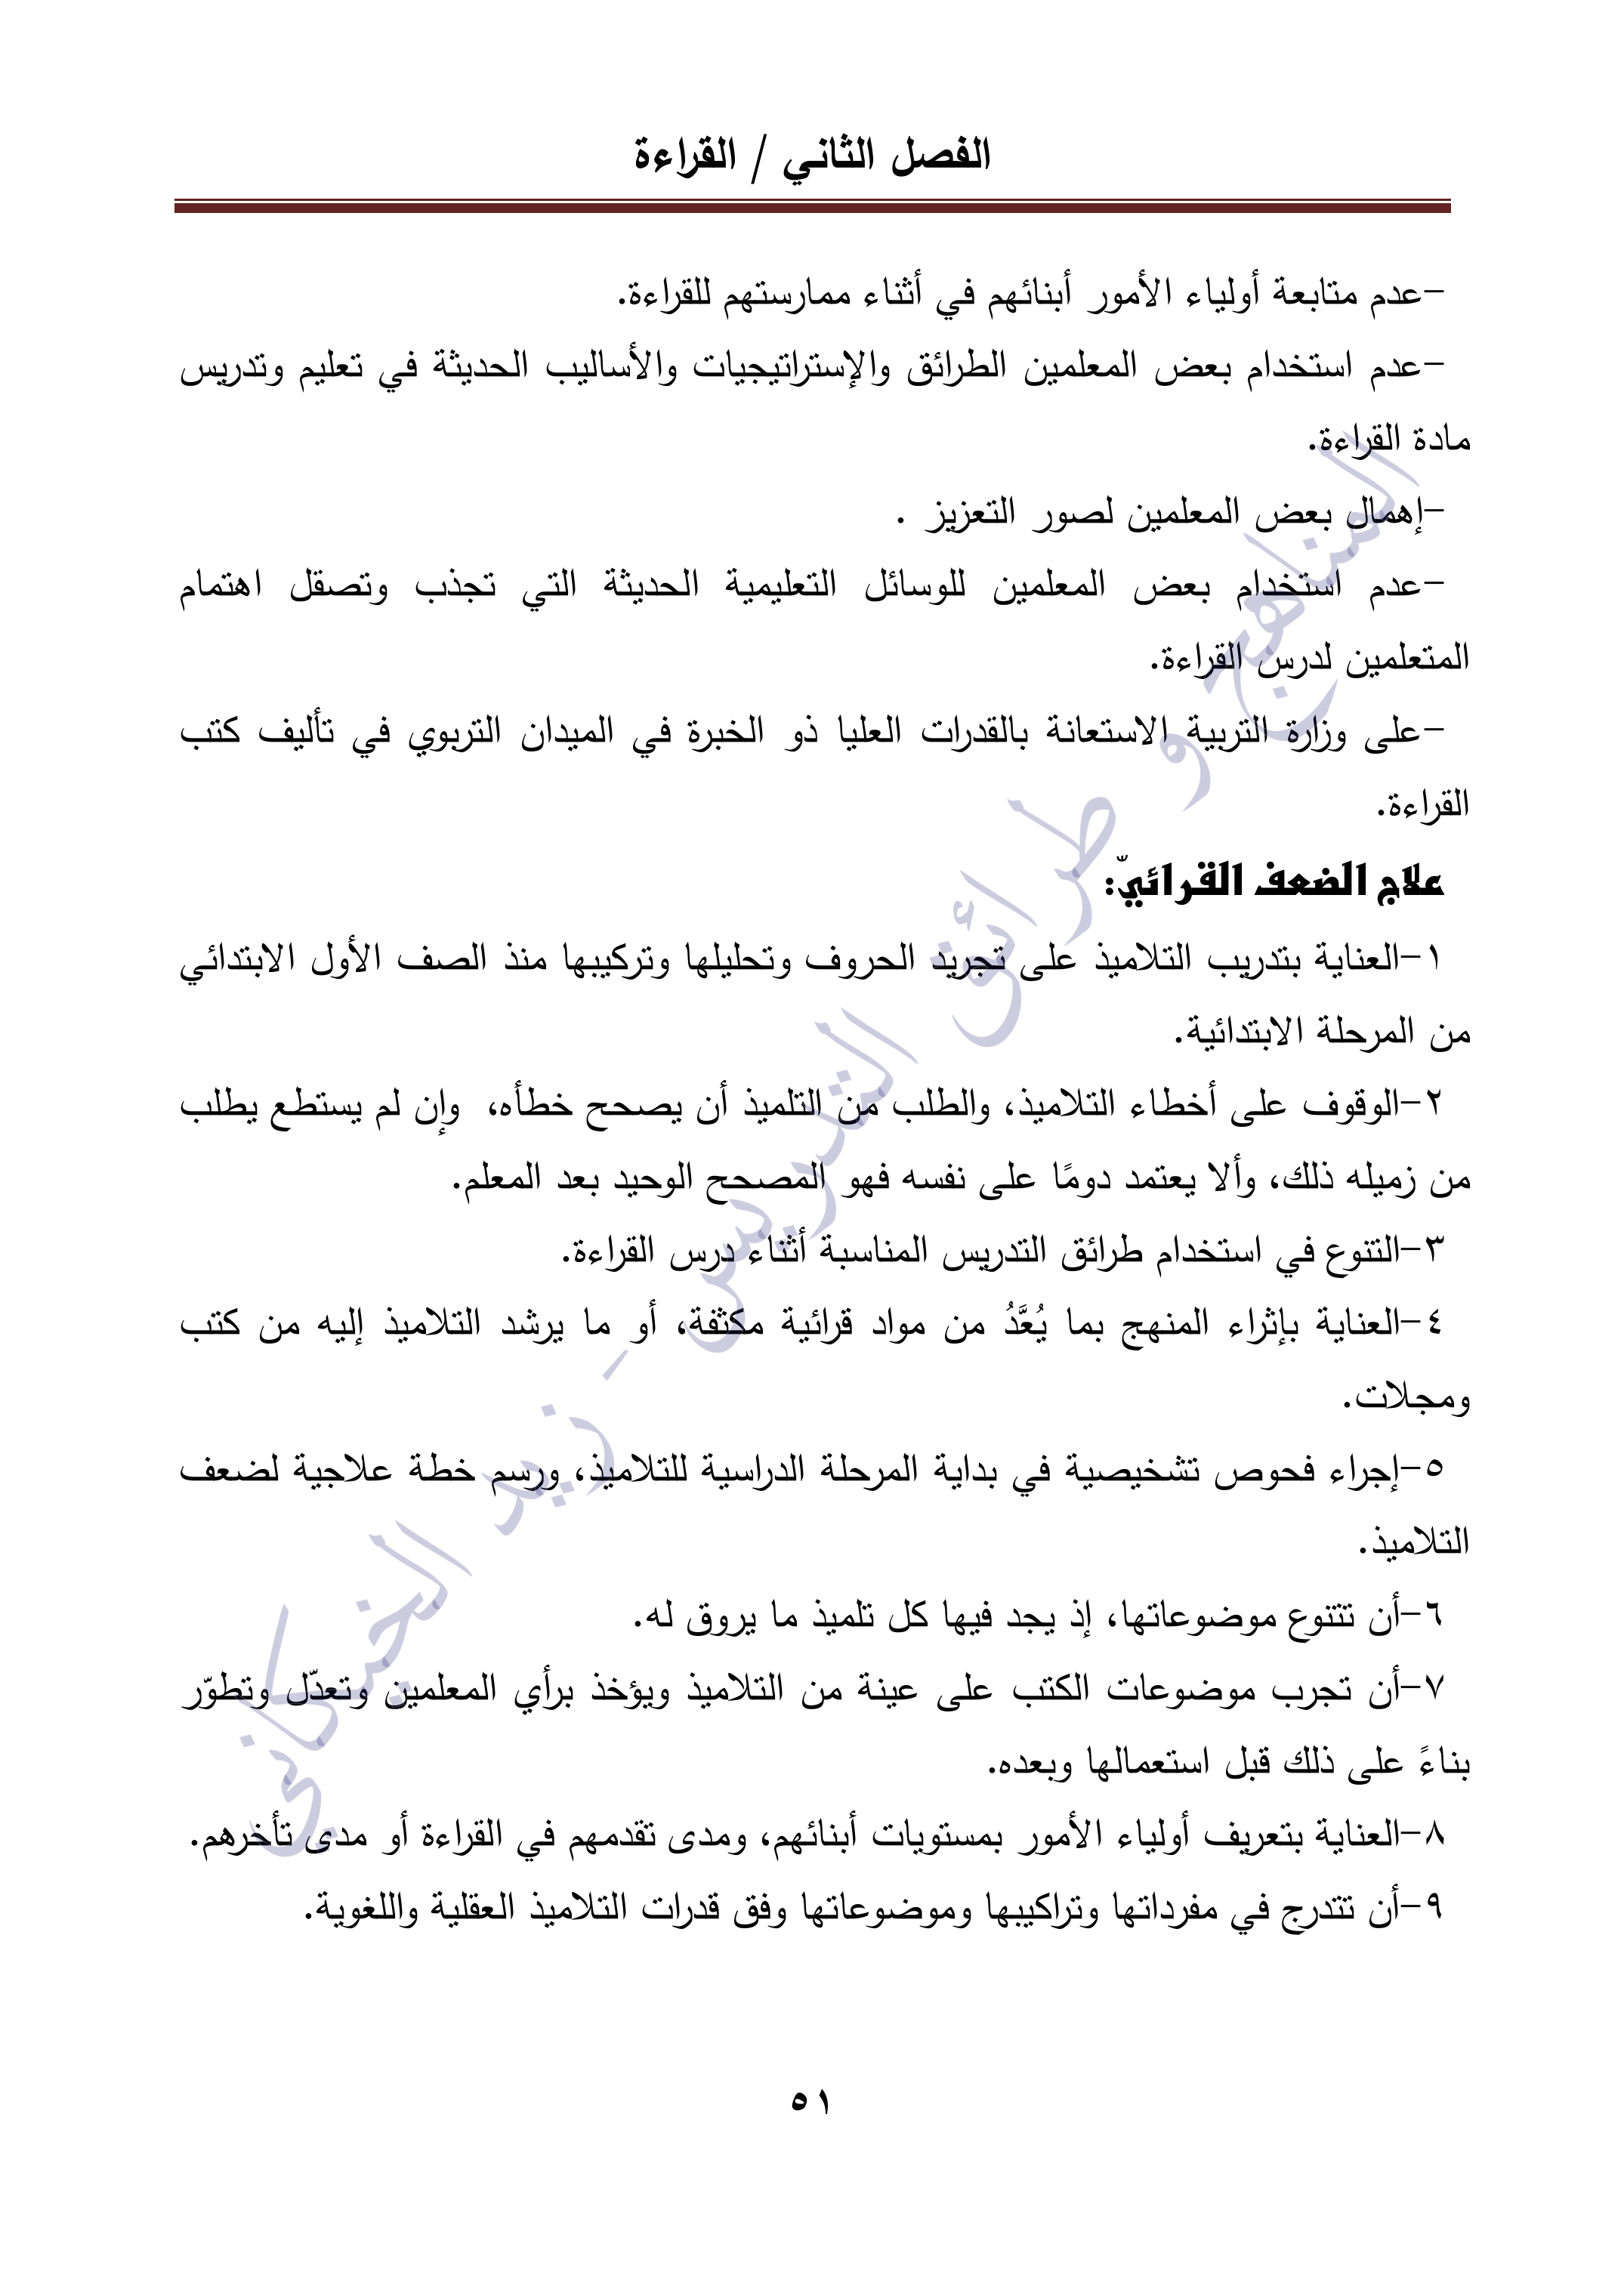 الفصل الثاني / القراءة
-عدم متابعة أولياء الأمور أبنائهم في أثناء ممارستهم للقراءة.
-عدم استخدام بعض المعلمين الطرائق والإستراتيجيات والأساليب الحديثة في تعليم وتدريس
مادة القراءة.
-إهمال بعض المعلمين لصور التعزيز .
-عدم استخدام بعض المعلمين للوسائل التعليمية الحديثة التي تجذب وتصقل اهتمام
المتعلمين لدرس القراءة.
-على وزارة التربية الاستعانة بالقدرات العليا ذو الخبرة في الميدان التربوي في تأليف كتب
القراءة.
علاج الضعف القرائيّ:
١-العناية بتدريب التلاميذ على تجريد الحروف وتحليلها وتركيبها منذ الصف الأول الابتدائي
من المرحلة الابتدائية.
٢-الوقوف على أخطاء التلاميذ، والطلب من التلميذ أن يصحح خطأه، وإن لم يستطع يطلب
من زميله ذلك، وألا يعتمد دومًا على نفسه فهو المصحح الوحيد بعد المعلم.
٣-التنوع في استخدام طرائق التدريس المناسبة أثناء درس القراءة.
٤-العناية بإثراء المنهج بما يُعَّدُ من مواد قرائية مكثفة، أو ما يرشد التلاميذ إليه من كتب
ومجلات.
٥-إجراء فحوص تشخيصية في بداية المرحلة الدراسية للتلاميذ، ورسم خطة علاجية لضعف
التلاميذ.
٦-أن تتنوع موضوعاتها، إذ يجد فيها كل تلميذ ما يروق له.
٧-أن تجرب موضوعات الكتب على عينة من التلاميذ ويؤخذ برأي المعلمين وتعدّل وتطوّر
بناءً على ذلك قبل استعمالها وبعده.
٨-العناية بتعريف أولياء الأمور بمستويات أبنائهم، ومدى تقدمهم في القراءة أو مدى تأخرهم.
٩-أن تتدرج في مفرداتها وتراكيبها وموضوعاتها وفق قدرات التلاميذ العقلية واللغوية.
٥١
المناهج و طرائق التدريس - زيد الخيكاني